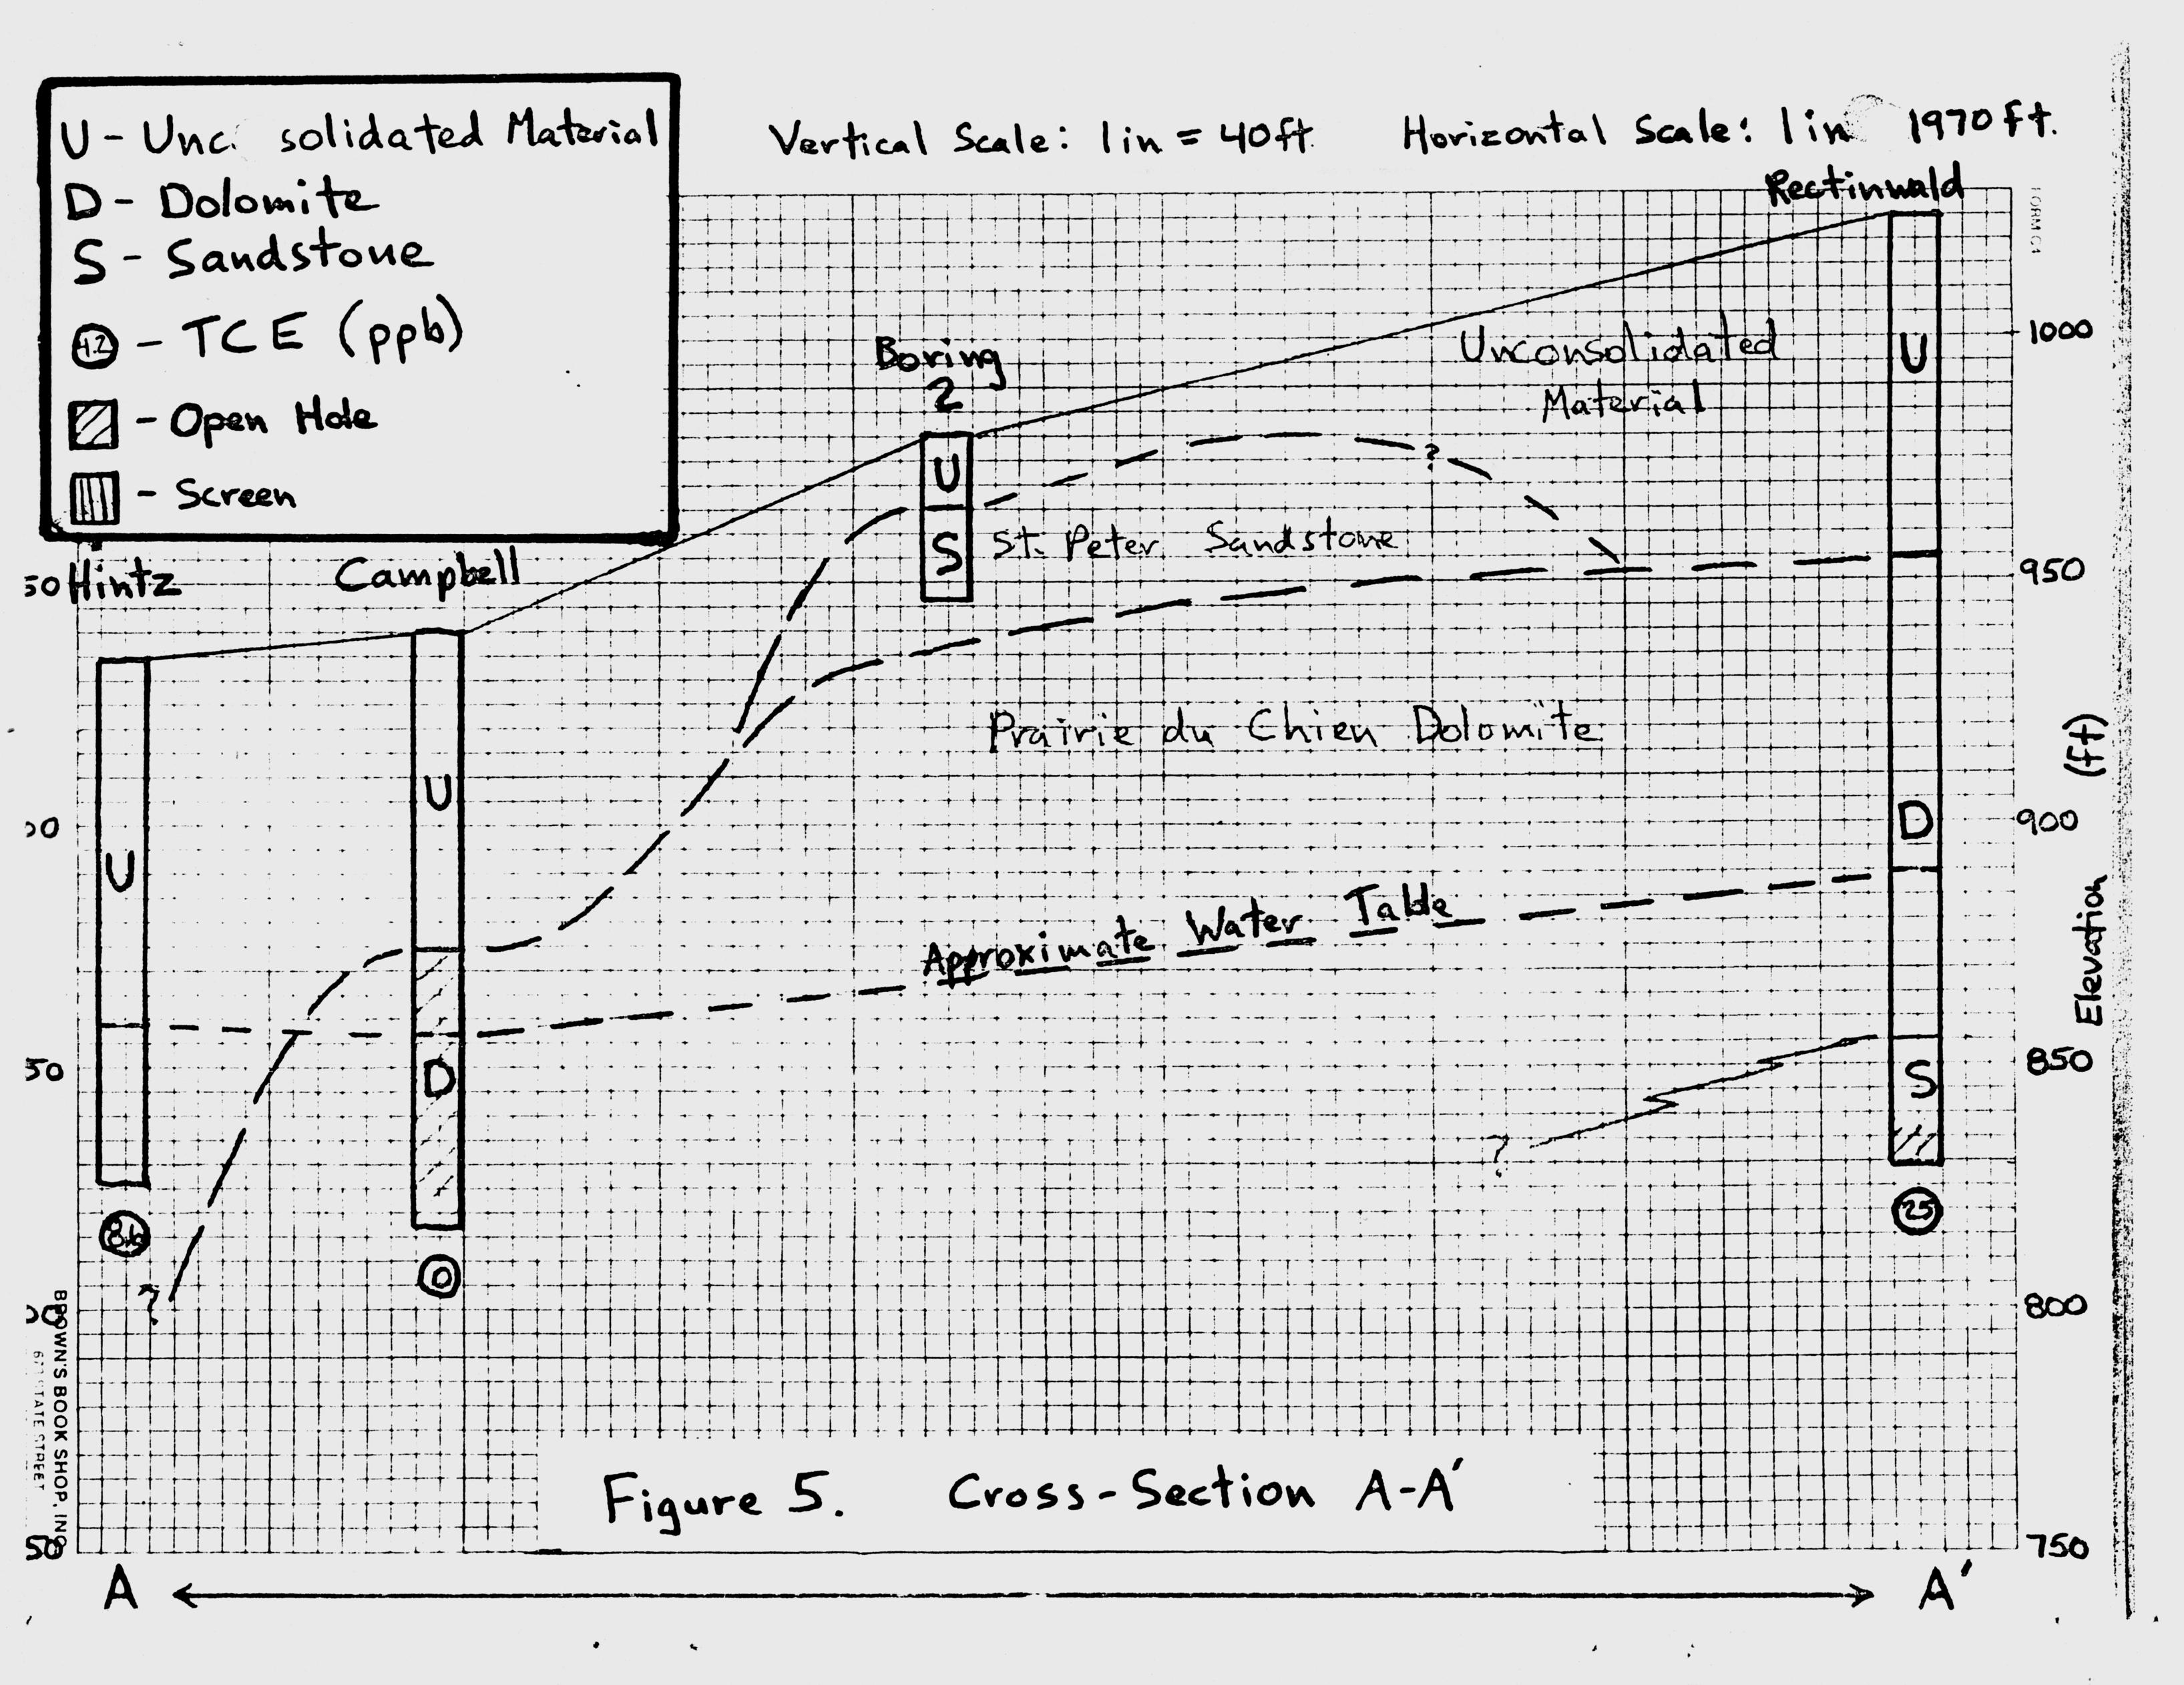 U - Unc. solidated Material
D - Dolomite
S - Sandstone
4.2 - TCE (ppb)
- Open Hole
- Screen
Vertical Scale: 1 in = 40 ft. Horizontal Scale: 1 in 1970 ft.
Rectinwald
FORM C1
1000
Unconsolidated
Material
U
Boring
2
U
S
St. Peter Sandstone
?
950
50 Hintz
Campbell
U
U
Prairie du Chien Dolomite
D
900
Elevation (ft)
Approximate Water Table
D
850
S
?
25
0
?
800
BROWN'S BOOK SHOP, INC.
STATE STREET
Figure 5. Cross-Section A-A'
50
750
A
A'